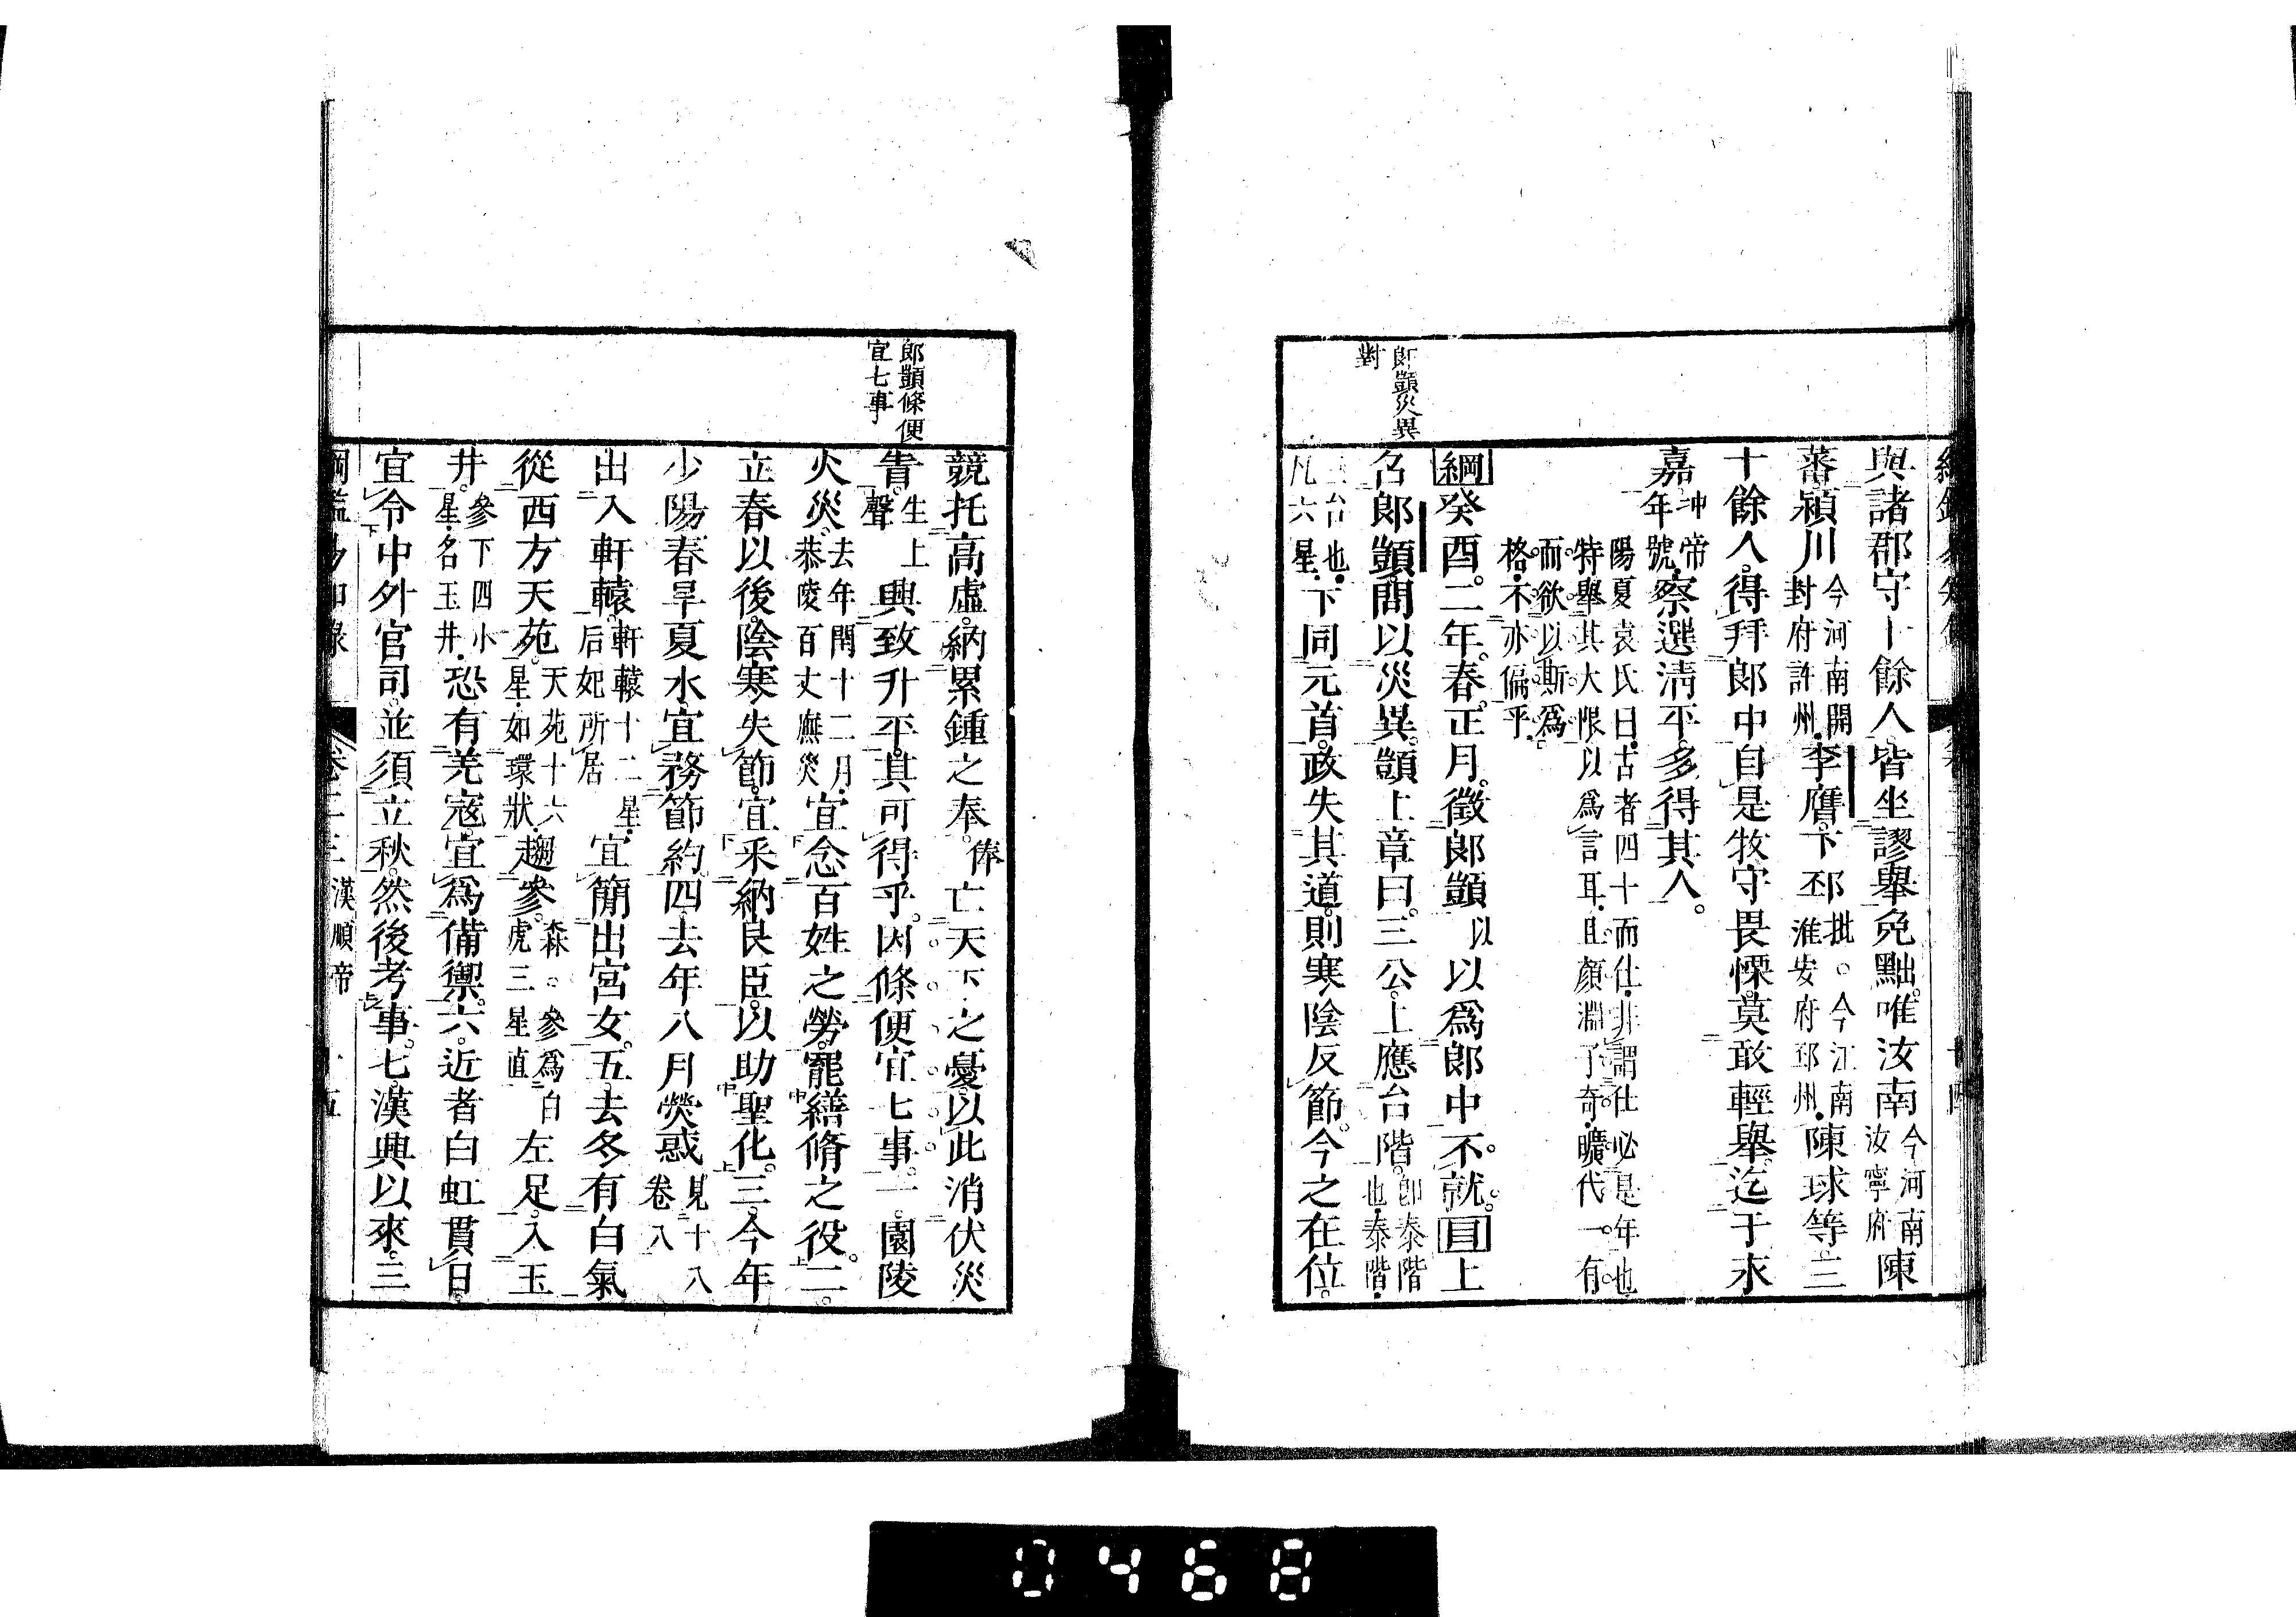 與諸郡守十餘人。皆坐謬舉免黜。唯汝南今河南汝寧府陳
蕃。潁川今河南開封府許州李膺。下邳批。今江南淮安府邳州陳球等三
十餘人。得拜郎中。自是牧守畏慄。莫敢輕舉。迄于永
嘉。冲帝年號察選清平。多得其人。
陽夏袁氏曰。古者四十而仕。非謂仕必是年也。
特舉其大限以爲言耳。且顏淵子奇。曠代一有
而欲以斯爲
格。不亦偏乎。
綱癸酉。二年。春。正月。徵郎顗以以爲郎中。不就。目上
召郎顗。問以災異。顗上章曰。三公。上應台階。卽泰階也。泰階
三台也。凡六星下同元首。政失其道。則寒陰反節。今之在位。
郎顗災異
對
競托高虛。納累鍾之奉。俸亡天下之憂。以此消伏災
眚。生上聲興致升平。其可得乎。因條便宜七事。一。園陵
火災。去年閏十二月。恭陵百丈廡災宜念百姓之勞。罷繕脩之役。二。
立春以後。陰寒失節。宜采納良臣。以助聖化。三。今年
少陽。春旱夏水。宜務節約。四。去年八月熒惑見十八卷八
出入軒轅。軒轅十二星。后妃所居宜簡出宮女。五。去冬有白氣
從西方天苑。天苑十六星。如環狀。趨參。森。參爲白虎三星直左足。入玉
井。參下四小星。名玉井。恐有羌寇。宜爲備禦。六。近者白虹貫日。
宜令中外官司。並須立秋。然後考事。七。漢興以來。三
郎顗條便
宜七事
漢順帝
0468